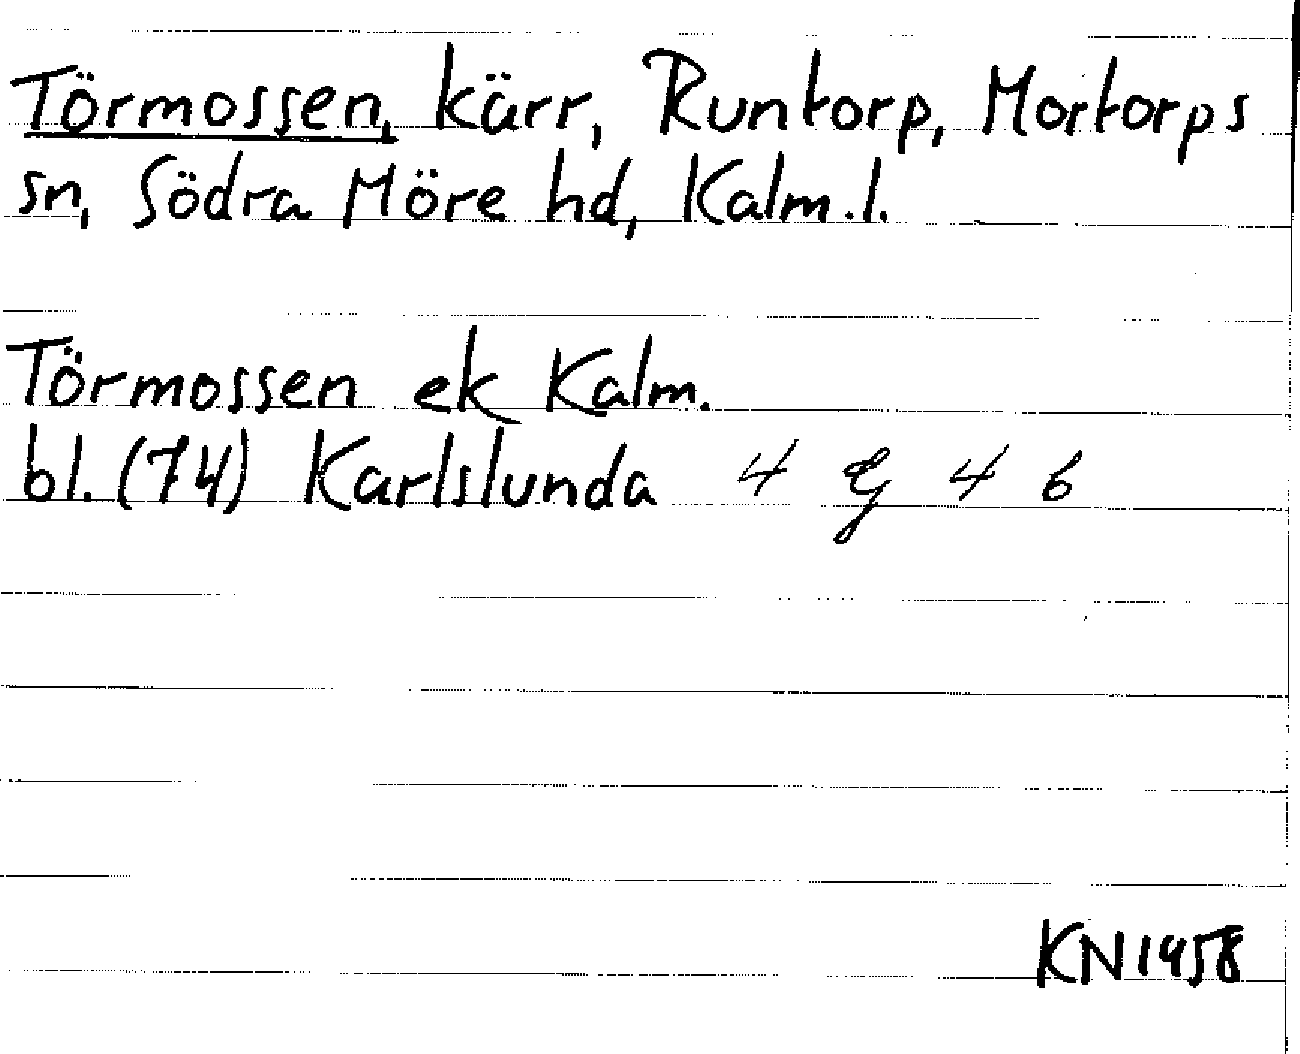 Törmossen, kärr, Runtorp, Mortorps
sn, Södra Möre hd, Kalm.l.
Törmossen ek Kalm.
bl. (74) Karlslunda 4 G 4 b
KN 1958